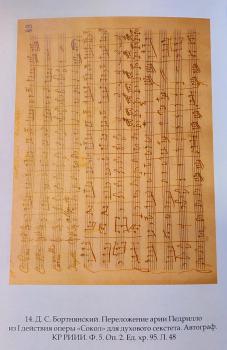 14. Д. С. Бортнянский. Переложение арии Педрилло
из I действия оперы «Сокол» для духового секстета. Автограф.
КР РИИИ. Ф. 5. Оп. 2. Ед. хр. 95. Л. 48